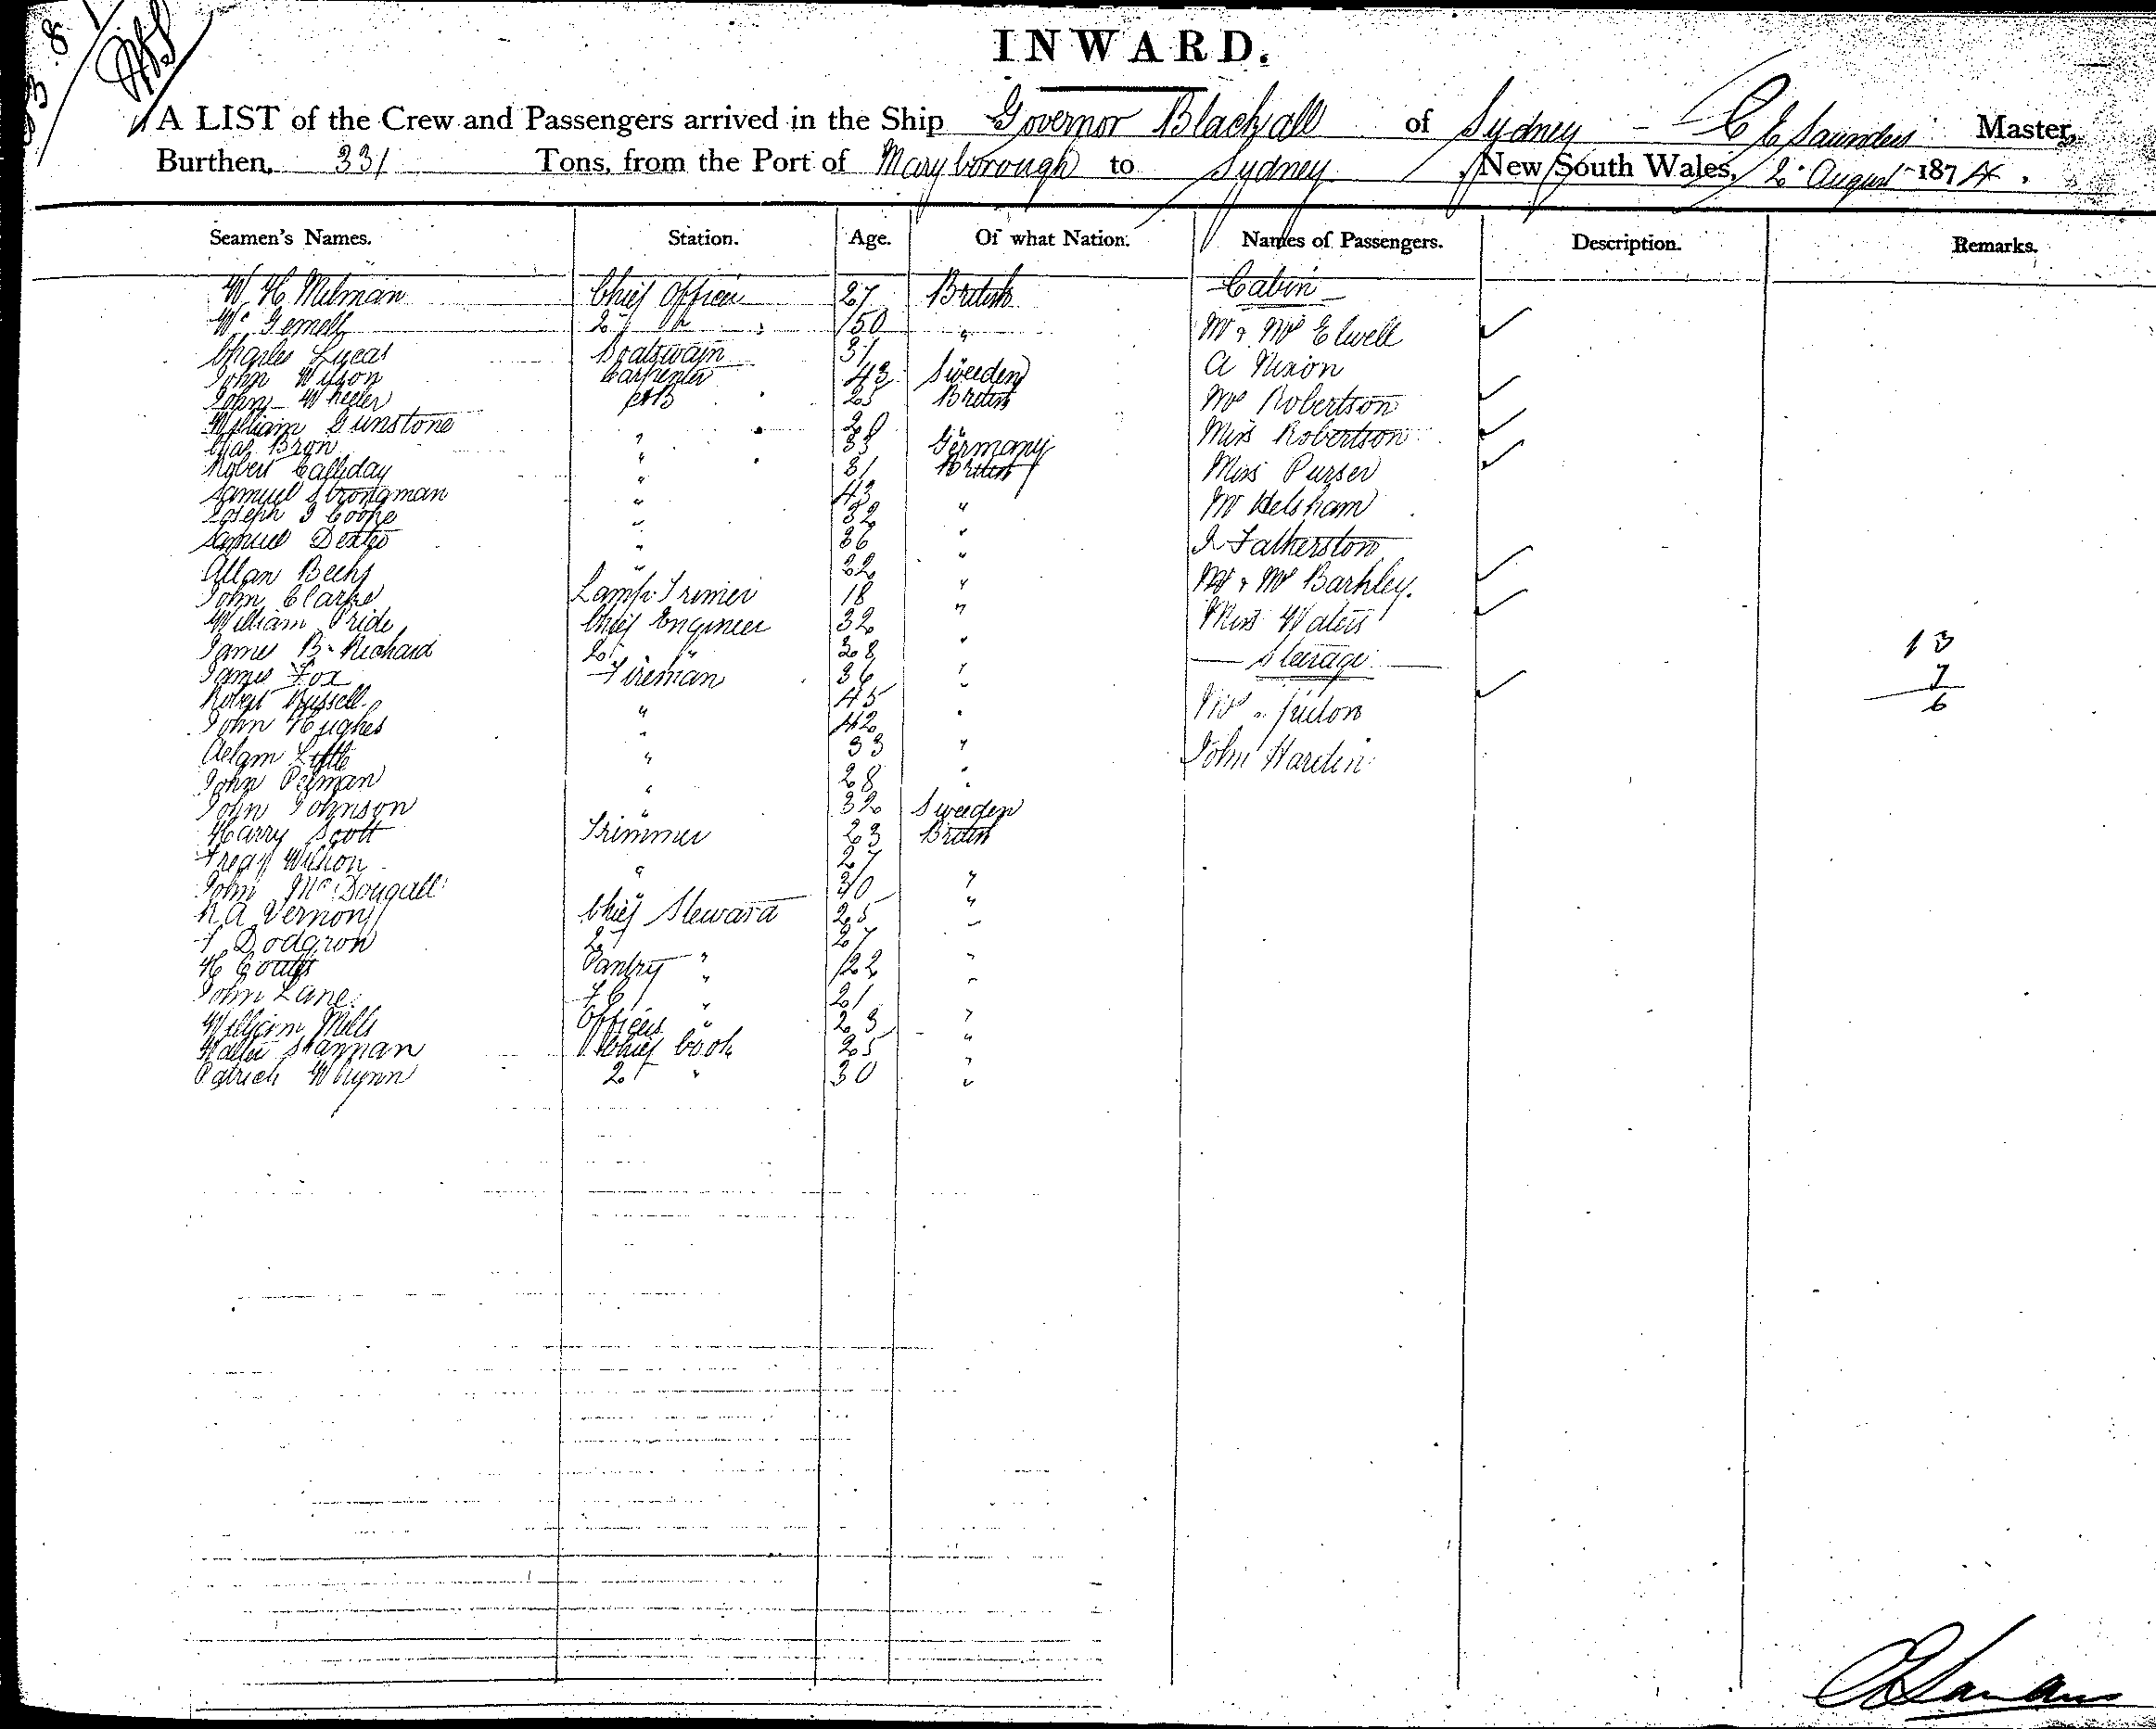 INWARD.
A LIST of the Crew and Passengers arrived in the Ship Governor Blackall of Sydney - C E Saunders Master,
Burthen, 331 Tons, from the Port of Maryborough to Sydney, New South Wales, 2 August 1874.
Seamen's Names. Station. Age. Of what Nation. Names of Passengers. Description. Remarks.
W H Milman Chief Officer 27 British Cabin
Wm Gemell 2 " 50 " Mr & Mrs Elwell
Charles Lucas Boatswain 31 A Nixon
John Wilson Carpenter 43 Sweeden
John Wheeler AB 25 British Mrs Robertson
William Gunstone 20 " Miss Robertson
Chas Bron " 33 Germany
Robert Calliday " 31 British Miss Purser
Samuel Strongman " 43
Joseph J Cooke " 32 " Mr Helsham
Samuel Dexter " 36 " Fatherston
Allan Beehs " 22 "
John Clarke Lamp Trimer 18 " Mr & Mrs Barkley.
William Pride Chief Engineer 32 " Miss Waters
James B. Richard 2 " 28 " Steerage 13
James Fox Fireman 36 " 7
Robert Russell " 45 " 6
John Hughes " 42 "
Adam Little " 33 " John Hardin
John Pelman " 28 "
John Johnson " 32 Sweeden
Harry Scott Trimmer 23 British
Fredk Wilson 27
John McDougall " 30 "
A Vernon Chief Steward 25 "
F Dodgson 2 27
H Coutts Pantry " 22 "
John Lane F C " 21 "
William Mills Officers " 23 "
Walter Shannan Chief Cook 25 "
Patrick Whynn 2 " 30 "
C E Saunders